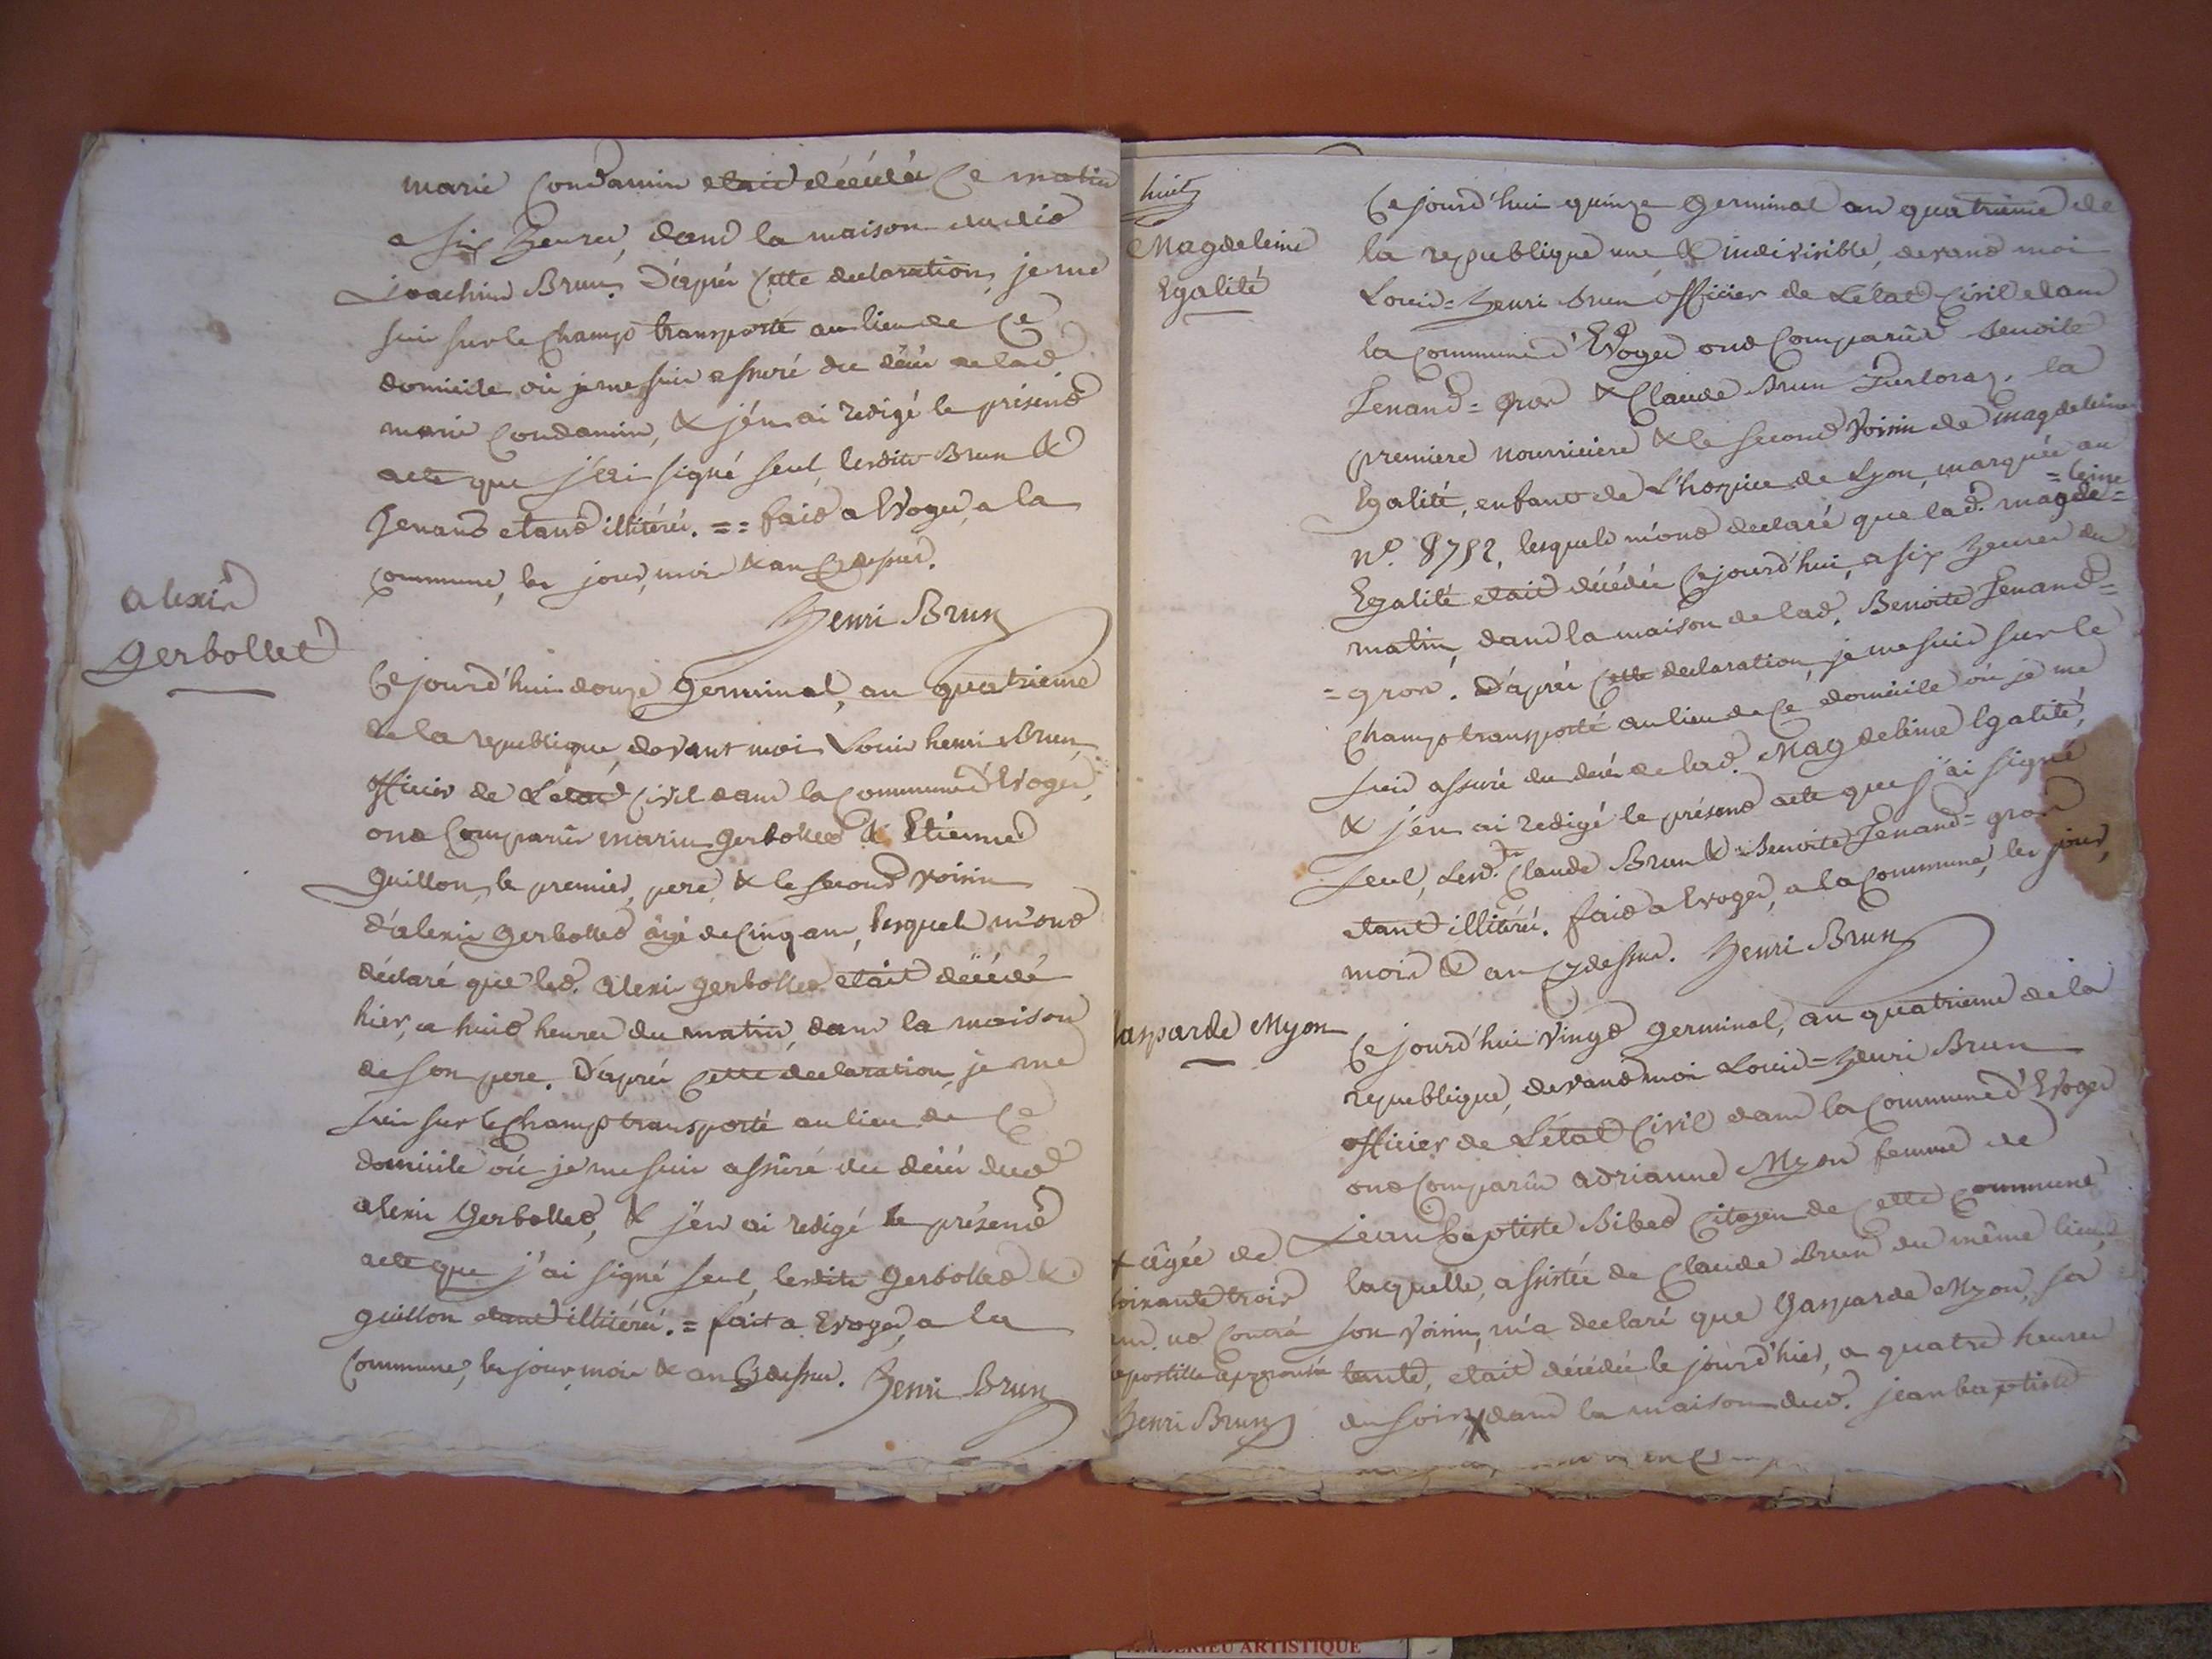 marie Condamin etait décédée Ce matin
a six heures, dans la maison dudit
Joachim Brun. D'après Cette declaration, je me
suis sur le Champ transporté au lieu de Ce
domicile où je me suis assuré du décès de lad.
marie Condamin, & j'en ai redigé le présent
acte que j'ai signé seul, lesdits Brun &
Jenand etant illitérés. == fait a Evoges, a la
commune, les jour, mois & an Cydessus.
Henri Brun
alexis
Gerbollet
Cejourd'hui douze Germinal, an quatrieme
de la republique, devant moi Louis henri Brun,
officier de L'état Civil dans la Commune d'Evoges,
ont Comparûs marin Gerbollet & Etienne
Guillon, le premier, pere, & le second voisin
d'alexis Gerbollet âgé de Cinq ans, lesquels m'ont
déclaré que led. alexis Gerbollet était décédé
hier, a huit heures du matin, dans la maison
de son pere. D'après Cette declaration, je me
suis sur le Champ transporté au lieu de Ce
domicile où je me suis assûré du décès dud.
alexis Gerbollet, & j'en ai redigé le présent
acte que j'ai signé seul, lesdits Gerbollet &
guillon etant illitérés. = fait a Evoges, a la
Commune, les jour, mois & an Cydessus. Henri Brun
huit
Magdeleine
Egalité
Cejourd'hui quinze Germinal an quatrieme de
la republique une & indivisible, devant moi
Louis=Henri Brun officier de L'état Civil dans
la Commune d'Evoges ont Comparûs Benoite
Jenand=gros & Claude Brun , la
premiere nourriciere & le second voisin de magdeleine
Egalité, enfant de L'hospice de Lyon, marquée au
n°. 8752, lesquels m'ont declaré que lad. magde=
=leine
Egalité etait décédée Cejourd'hui, a six heures du
matin, dans la maison de lad. Benoite Jenand=
=gros. D'après Cette declaration, je me suis sur le
Champ transporté au lieu de Ce domicile où je me
suis assuré du decès de lad. Magdeleine Egalité,
& j'en ai redigé le présent acte que j'ai signé
seul, Lesd.ts Claude Brun & Benoite Jenand=gros
etant illitérés. fait a Evoges, a la Commune, les jour,
mois & an Cydessus. Henri Brun
Gasparde Myon
Cejourd'hui vingt germinal, an quatrieme de la
republique, devant moi Louis=Henri Brun
officier de L'état Civil dans la Commune d'Evoges
ont Comparûs adrianne Myon femme de
Jean baptiste Bibet Citoyen de Cette Commune
laquelle, assistée de Claude Brun du même lieu,
son voisin, m'a declaré que Gasparde Myon, sa
tante, etait décédée le jourd'hier, a quatre heures
du soir, X dans la maison dud. jean baptiste
+ âgée de
soixante trois
ans.
apostille approuvée
Henri Brun
ARTISTIQUE